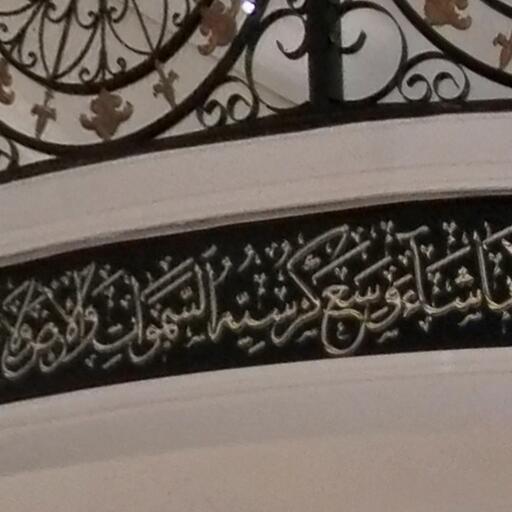 بِمَا شَآءَ وَسِعَ كُرْسِيُّهُ السَّمَٰوَاتِ وَالْأَرْضَ وَلَا